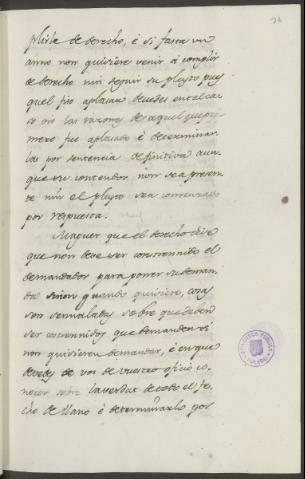 plirla de derecho, é si fasta un
anno non quisiere venir á complir
de derecho nin seguir su pleyto pues
quel fue aplazado devedes en tal ca
so oir las razones de aquel que pri
mero fue aplazado é determinar
las por sentencia difinitiva aun
que su contendor non sea presen
te nin el pleyto sea comenzado
por respuesta.
Maguer que el derecho dice
que non deve ser costrennido el
demandador para poner su deman
da sinon quando quisiere, cosas
son sennaladas sobre que deben
ser costrennidos que demanden si
non quisieren demandar, é en que
devedes de vos de vuestro oficio co
nocer sobre la verdat de todo el fe
cho de llano é determinarlo por